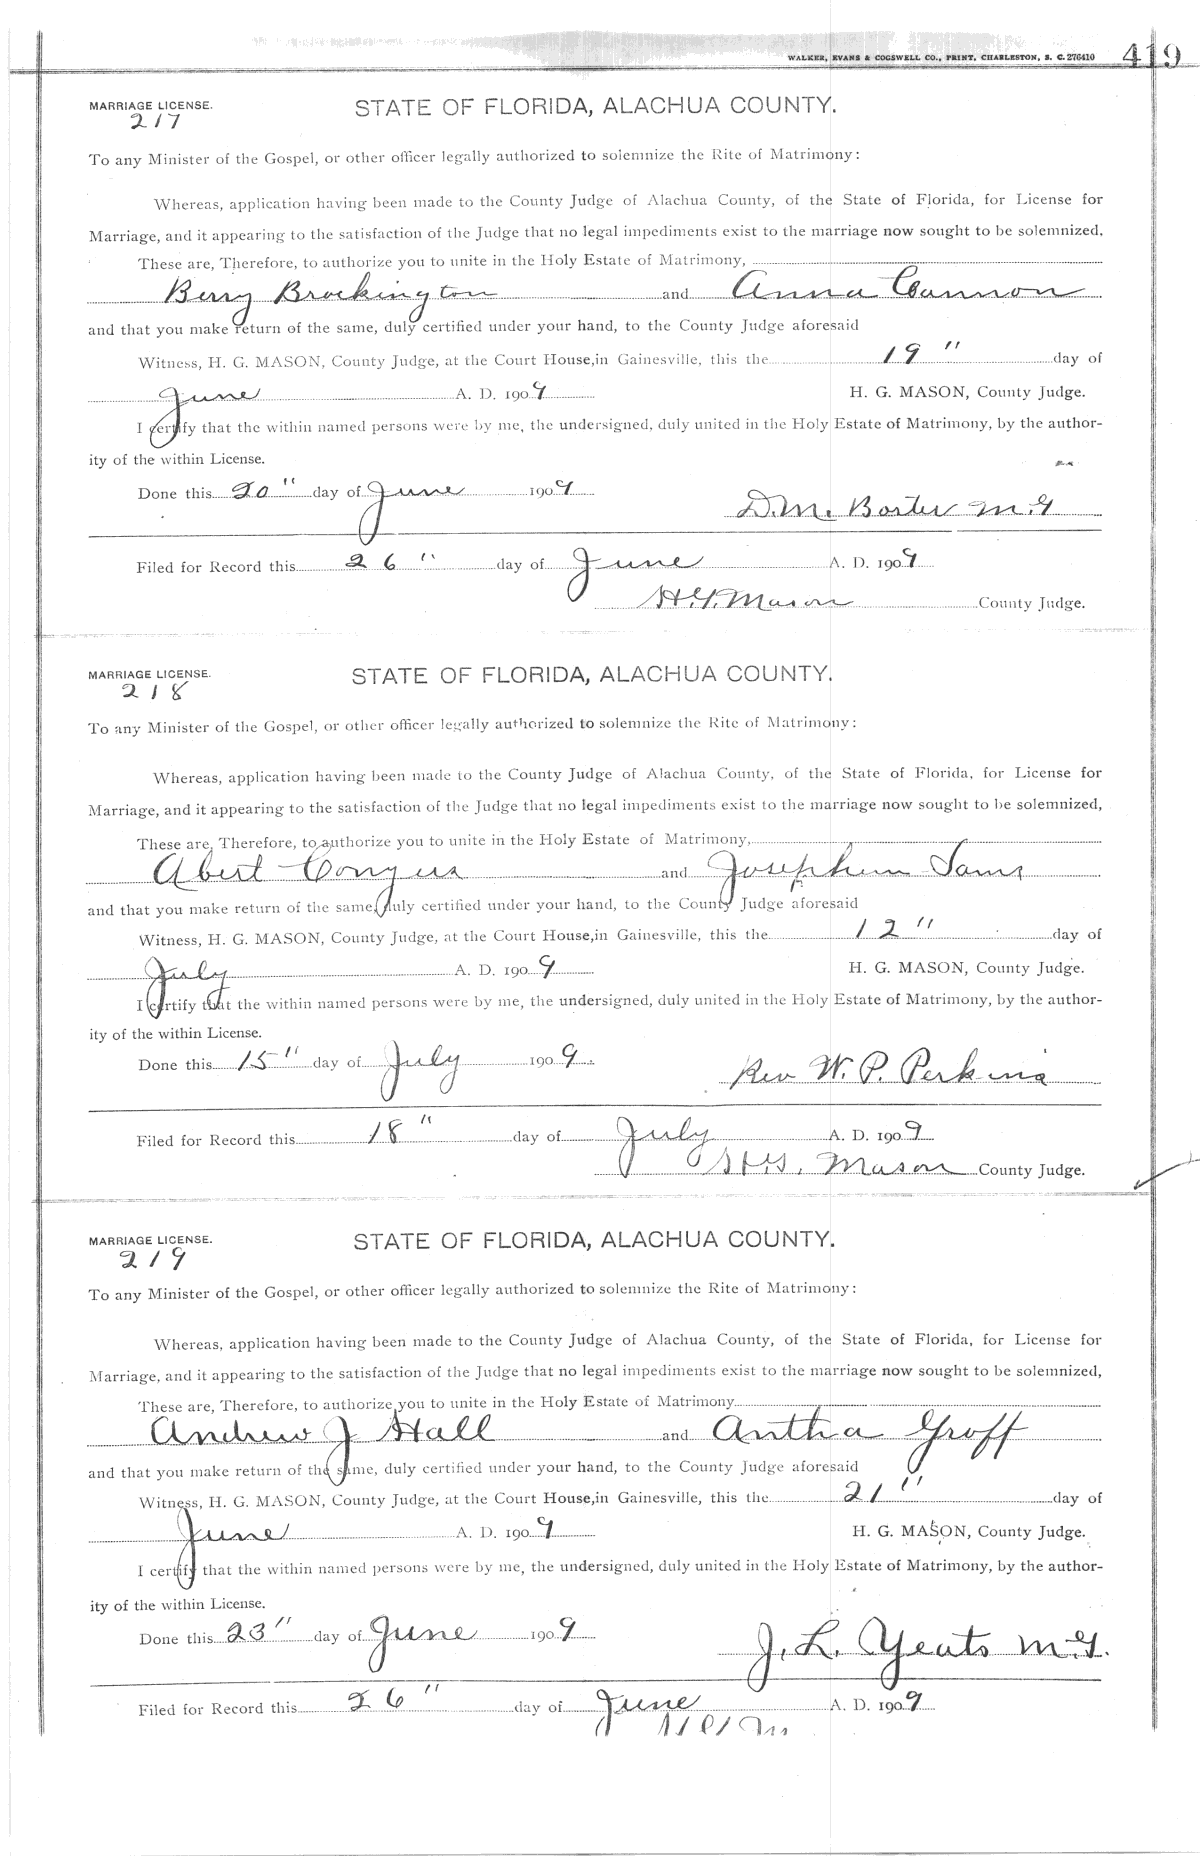 WALKER, EVANS & COGSWELL CO., PRINT, CHARLESTON, S. C. 276410 419
MARRIAGE LICENSE. STATE OF FLORIDA, ALACHUA COUNTY.
217
To any Minister of the Gospel, or other officer legally authorized to solemnize the Rite of Matrimony:
Whereas, application having been made to the County Judge of Alachua County, of the State of Florida, for License for
Marriage, and it appearing to the satisfaction of the Judge that no legal impediments exist to the marriage now sought to be solemnized,
These are, Therefore, to authorize you to unite in the Holy Estate of Matrimony,
Berry Brockington and Anna Cannon
and that you make return of the same, duly certified under your hand, to the County Judge aforesaid
Witness, H. G. MASON, County Judge, at the Court House, in Gainesville, this the 19" day of
June A. D. 1909 H. G. MASON, County Judge.
I certify that the within named persons were by me, the undersigned, duly united in the Holy Estate of Matrimony, by the author-
ity of the within License.
Done this 20" day of June 1909
D. M. Baxter M. G
Filed for Record this 26" day of June A. D. 1909
H. G. Mason County Judge.
MARRIAGE LICENSE. STATE OF FLORIDA, ALACHUA COUNTY.
218
To any Minister of the Gospel, or other officer legally authorized to solemnize the Rite of Matrimony:
Whereas, application having been made to the County Judge of Alachua County, of the State of Florida, for License for
Marriage, and it appearing to the satisfaction of the Judge that no legal impediments exist to the marriage now sought to be solemnized,
These are, Therefore, to authorize you to unite in the Holy Estate of Matrimony,
Abert Conyers and Josephine Sams
and that you make return of the same, duly certified under your hand, to the County Judge aforesaid
Witness, H. G. MASON, County Judge, at the Court House, in Gainesville, this the 12" day of
July A. D. 1909 H. G. MASON, County Judge.
I certify that the within named persons were by me, the undersigned, duly united in the Holy Estate of Matrimony, by the author-
ity of the within License.
Done this 15" day of July 1909
Rev W. P. Perkins
Filed for Record this 18" day of July A. D. 1909
H. G. Mason County Judge.
MARRIAGE LICENSE. STATE OF FLORIDA, ALACHUA COUNTY.
219
To any Minister of the Gospel, or other officer legally authorized to solemnize the Rite of Matrimony:
Whereas, application having been made to the County Judge of Alachua County, of the State of Florida, for License for
Marriage, and it appearing to the satisfaction of the Judge that no legal impediments exist to the marriage now sought to be solemnized,
These are, Therefore, to authorize you to unite in the Holy Estate of Matrimony
Andrew J Hall and Antha Groff
and that you make return of the same, duly certified under your hand, to the County Judge aforesaid
Witness, H. G. MASON, County Judge, at the Court House, in Gainesville, this the 21" day of
June A. D. 1909 H. G. MASON, County Judge.
I certify that the within named persons were by me, the undersigned, duly united in the Holy Estate of Matrimony, by the author-
ity of the within License.
Done this 23" day of June 1909
J. L. Yeats M. G.
Filed for Record this 26" day of June A. D. 1909